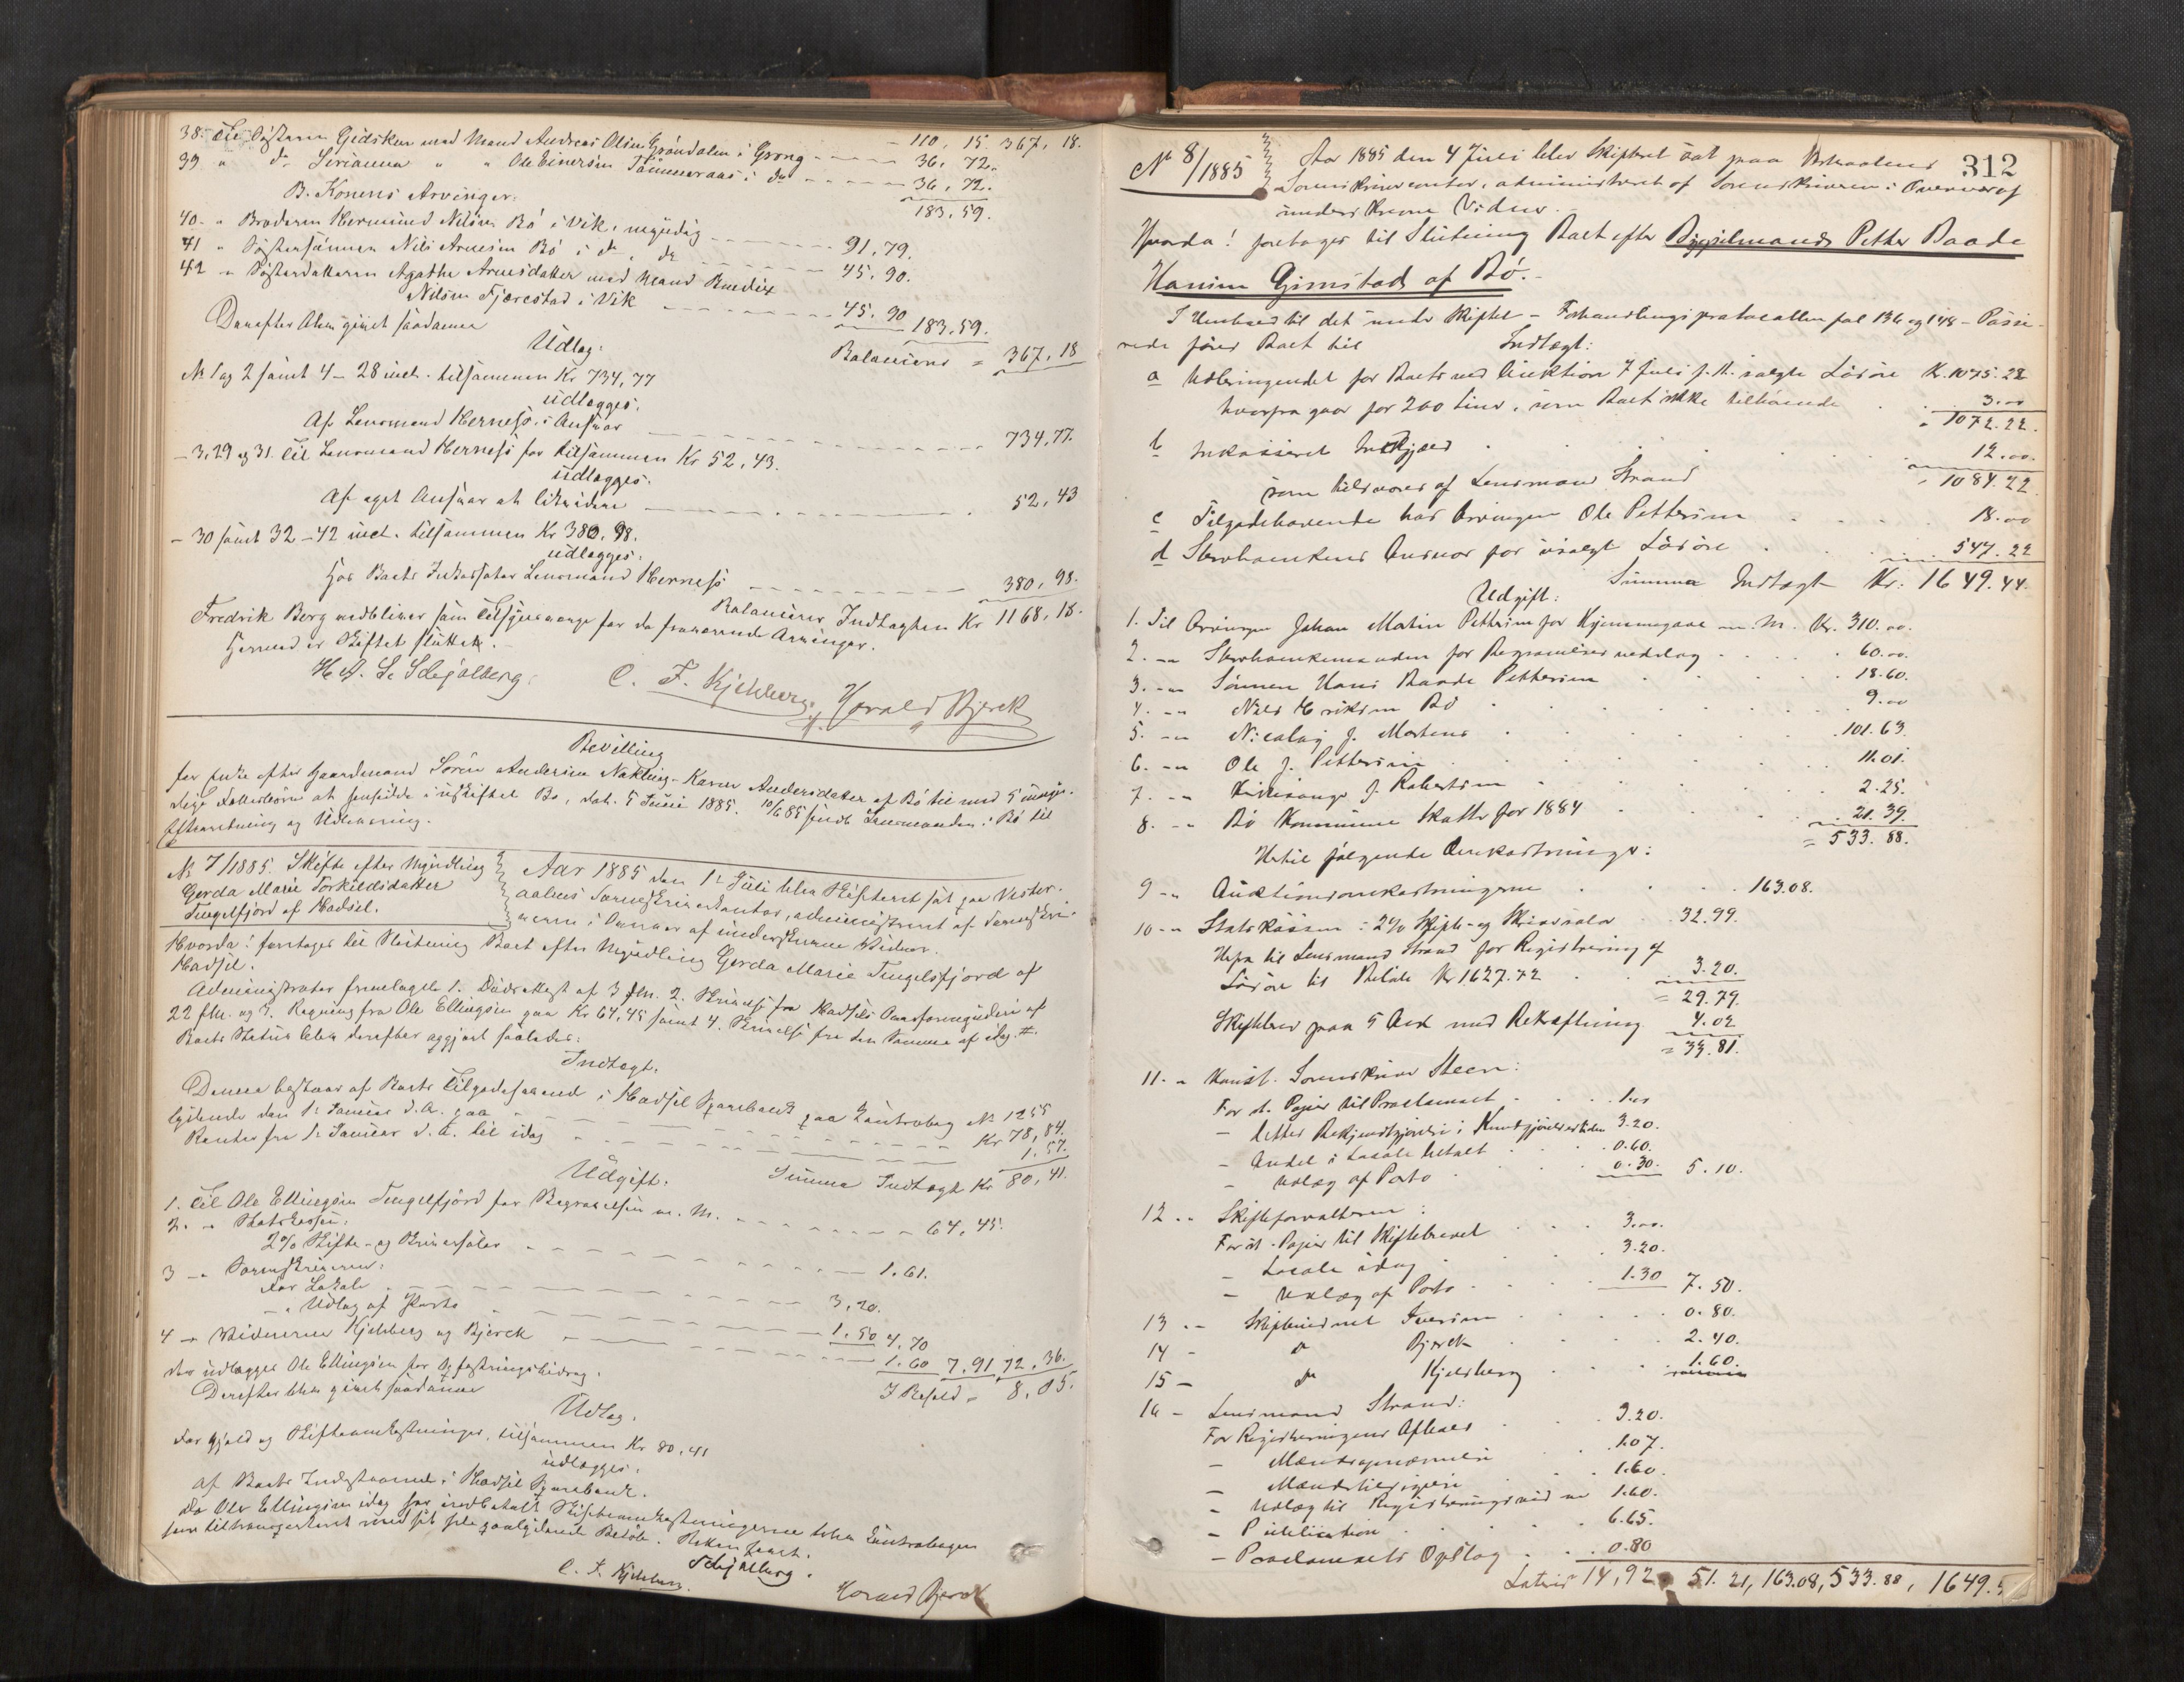 38. Til Søsteren Gidsken med Mand Andreas Olsen Grøndalen i Grong - - - 36, 72. 110, 15. 367, 18.
39 " do Serianna " " Ole Einersen Tømmeraas i do - - - - - 36, 72.
183, 59.
B. Konens Arvinger:
40. " Broderen Hermund Nilsen Bø i Vik, myndig - - - - - 91, 79.
41 " Søstersønnen Nils Arnesen Bø i do, do - - - - - 45, 90.
42 " Søsterdatteren Agathe Arnesdatter med Mand Bendix
Nilsen Fjærestad i Vik - - - - - 45. 90 183, 59.
Balancerer = 367, 18
Derefter blev givet saadanne
Udlæg:
No 1 og 2 samt 4 - 28 incl. tilsammen Kr 734, 77
udlægges:
Af Lensmand Herness's Ansvar - - - - - 734, 77.
- 3, 29 og 31. til Lensmand Herness for tilsammen Kr 52, 43.
udlægges:
Af eget Ansvar at likvidere - - - - - 52, 43
- 30 samt 32 - 42 incl. tilsammen Kr 380, 98.
udlægges:
Hos Boets Inkassator Lensmand Herness - - - - - 380, 98.
Balancerer Indtægten Kr 1168, 18.
Fredrik Berg vedbliver som Tilsynsværge for de fraværende Arvinger.
Hermed er Skiftet sluttet.
H. A. S. Schjølberg. C. F. Kjelsberg. Harald Bjerck
Bevilling
for Enke efter Gaardmand Søren Andersen Nykling - Karen Andersdatter af Bø til med 5 umyn-
dige Fællesbørn at hensidde i uskiftet Bo, dat. 5 Juni 1885. 10/6 85 sendt Lensmanden i Bø til
Efterretning og Udlevering.
No 7/1885. Skifte efter Myndling
Gerda Marie Torkildsdatter
Tengelfjord af Hadsel.
Aar 1885 den 1ste Juli blev Skifteret sat paa Vester-
aalens Sorenskriverkontor, administreret af Sorenskri-
veren i Overvær af underskrevne Vidner.
Hvorda: foretoges til Slutning Boet efter Myndling Gerda Marie Tengelsfjord af
Hadsel.
Administrator fremlagde 1. Dødsattest af 3 fm. 2. Skrivelse fra Hadsels Overformynderi af
22 fm. og 3. Regning fra Ole Ellingsen paa Kr 64, 45 samt 4. Skrivelse fra den Samme af idag.
Boets Status blev derefter opgjort saaledes:
Indtægt.
Denne bestaar af Boets Tilgodehavende i Hadsel Sparebank paa Kontrabog No 1255
lydende den 1ste Januar d. A. paa - - - - - Kr 78, 84.
Renter fra 1ste Januar d. A. til idag - - - - - 1. 57.
Summa Indtægt Kr 80, 41.
Udgift:
1. Til Ole Ellingsen Tengelfjord for Begravelsen m. M. - - - - - 64, 45.
2. " Statskassen:
2% Skifte- og Skriversalær - - - - - 1. 61.
3 - " Sorenskriveren:
For Lokale - - - - - 3, 20.
- " Udlæg af Porto - - - - - 1. 50 4, 70
4 - " Vidnerne Kjelsberg og Bjerck - - - - - 1. 60 7, 91 72, 36.
I Behold = 8, 05.
der udlægges Ole Ellingsen for Opfostringsbidrag.
Derefter blev givet saadanne
Udlæg.
For Gjæld og Skifteomkostninger, tilsammen Kr 80, 41
udlægges:
af Boets Indestaaende i Hadsel Sparebank.
Da Ole Ellingsen idag har indbetalt Skifteomkostningerne blev Kontrabogen
ham tiltransporteret med sit fulde paalydende Beløb. Boken hævet.
Schjølberg.
C. F. Kjelsberg. Harald Bjerck
312
No 8/1885
Aar 1885 den 4 Juli blev Skifteret sat paa Vesteraalens
Sorenskrivercontor, administreret af Sorenskriveren i Overvær af
underskrevne Vidner.
Hvorda! foretoges til Slutning Boet efter Bygselmand Petter Baade
Hansen Gimstad af Bø.
I Henhold til det under Skiftet - Forhandlingsprotocollen fol 136 og 148 - Passe-
rede føres Boet til
Indtægt:
a Udbringendet for Boets ved Auktion 7 Juli f. A. solgte Løsøre Kr. 1075. 22
hvorfra gaar for 200 Liner, som Boet ikke tilhørende . . 3. 00
= 1072. 22.
b Inkasseret Indgjæld . . . 12. 00.
= 1084. 22
som tilsvares af Lensmand Strand
c Tilgodehavende hos Arvingen Ole Pettersen . . . 18. 00
d Stervboenkens Ansvar for usolgt Løsøre . . . 547. 22
Summa Indtægt Kr. 1649. 44.
Udgift:
1. Til Arvingen Johan Martin Pettersen for Hjemmegave m. M. Kr. 310. 00.
2. - " Stervboenkemanden for Begravelsesvedlag . . . 60. 00.
3. - " Sønnen Hans Baade Pettersen . . . 18. 60.
4. - " Nils Eriksen Bø . . . 9. 00
5. - " Nicolay J. Martens . . . 101. 63.
6. - " Ole J. Pettersen . . . 11. 01.
7. - " J. Robertsen . . . 2. 25.
8. - " Bø Kommune Skatter for 1884 . . . 21. 39.
= 533. 88.
Hertil følgende Omkostninger:
9 - " Auktionsomkostningerne . . . 163. 08.
10 - " Statskassen: 2% Skifte- og Skriversalær . . 32. 99.
Herfra til Lensmand Strand for Registrering af
Løsøre til Beløb Kr 1627. 72 . . . 3. 20.
= 29. 79.
Skiftebrev paa 5 Ark med Bekræftning 4. 02
= 33. 81.
11. " Const. Sorenskriver Steen:
For st. Papir til Proclamaet . . . 1. 00
- dettes Bekjendtgjørelse i Kundgjørelsestiden 3. 20.
- Andel i Locale betalt . . . 0. 60.
- Udlæg af Porto . . . 0. 30. 5. 10.
12. " Skifteforvalteren:
For st. Papir til Skiftebrevet . . . 3. 00.
- Locale idag . . . 3. 20.
- Udlæg af Porto . . . 1. 30 7. 50.
13. - Skiftevidnet Iversen . . . 0. 80.
14 - do Bjerck . . . 2. 40.
15 - do Kjelsberg . . . 1. 60.
16 - Lensmand Strand:
For Registreringens Afhold . . 3. 20.
- Mændsopnævnelse . . 1. 07.
- Mændstilsigelse . . 1. 60.
- Udlæg til Registreringsvidne 1. 60.
- Publication . . . 6. 65.
- Proclamaets Opslag . . 0. 80
Lateris 14, 92 51. 21, 163. 08, 533. 88, 1649.